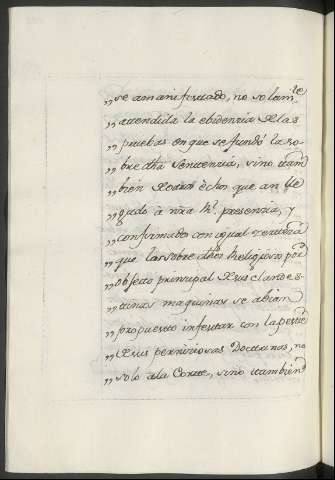 „se a manifestado, no solam.te
„attendida la ebidenzia de las
„pruebas en que se fundó la so-
„bre dha Sentenzia, sino tam
„bien de otros echos que an lle
„gado à nra Rl. presenzia, y
„confirmados con igual zerteza
„que los sobre dhos Religiosos por
„objeto prinsipal de sus clandes-
„tinas maquinas se abian
„propuesto infestar con la peste
„de sus perniziosas Doctrinas, no
„solo a la Corte, sino tambien